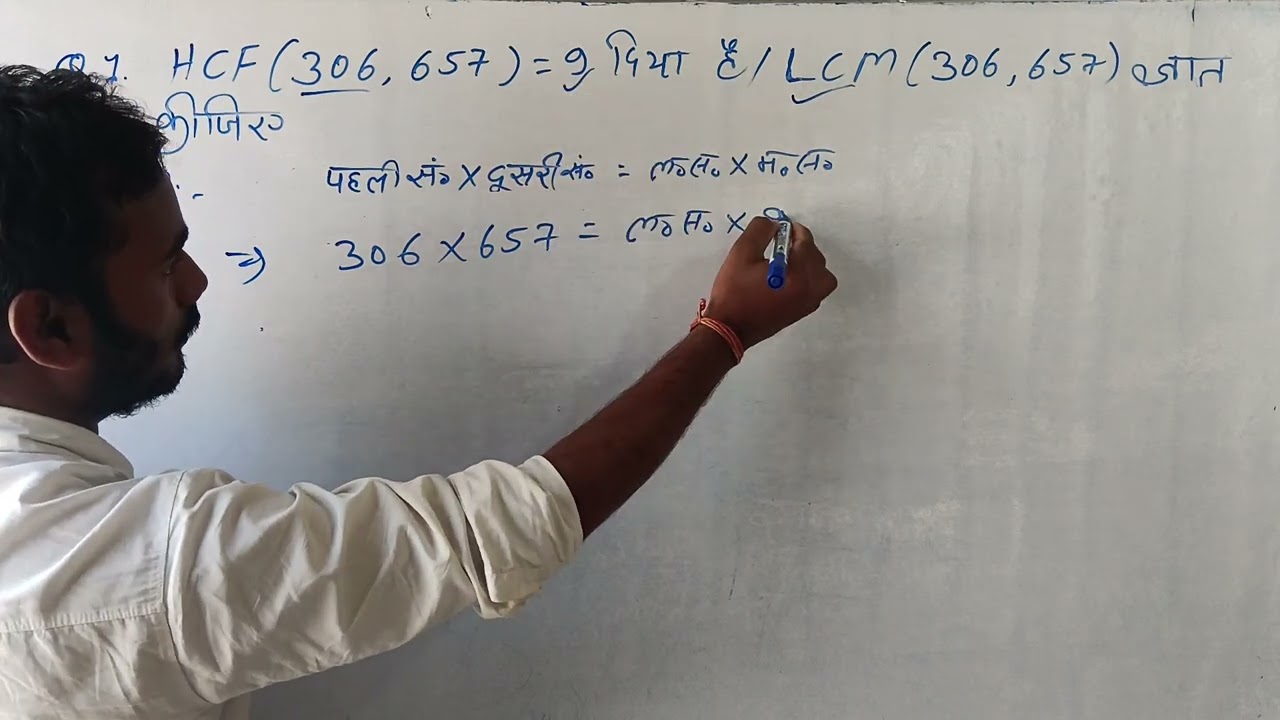 Q 1. HCF (306, 657) = 9, दिया है / LCM (306, 657) ज्ञात
कीजिए
:- पहली सं० × दूसरी सं० = ल०स० × म०स०
⇒ 306 × 657 = ल०स० × 9